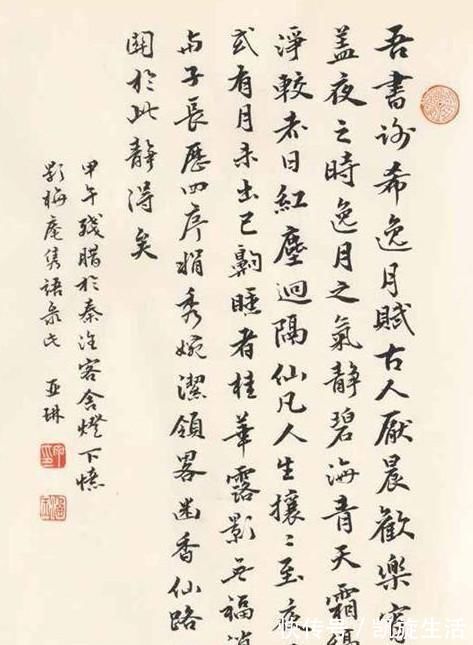 吾書谢希逸月賦古人厭晨歡樂宵
蓋夜之時逸月之氣靜碧海青天霜縞
淨較赤日紅塵迥隔仙凡人生攘〻至夜
或有月未出已齁睡者桂華露影无福消
与子長歷四序娟秀婉潔領畧幽香仙路
關於此靜得矣
甲午殘臘於秦淮客舍燈下憶
影梅庵雋語录此 亚琳
快传号/凯旋生活